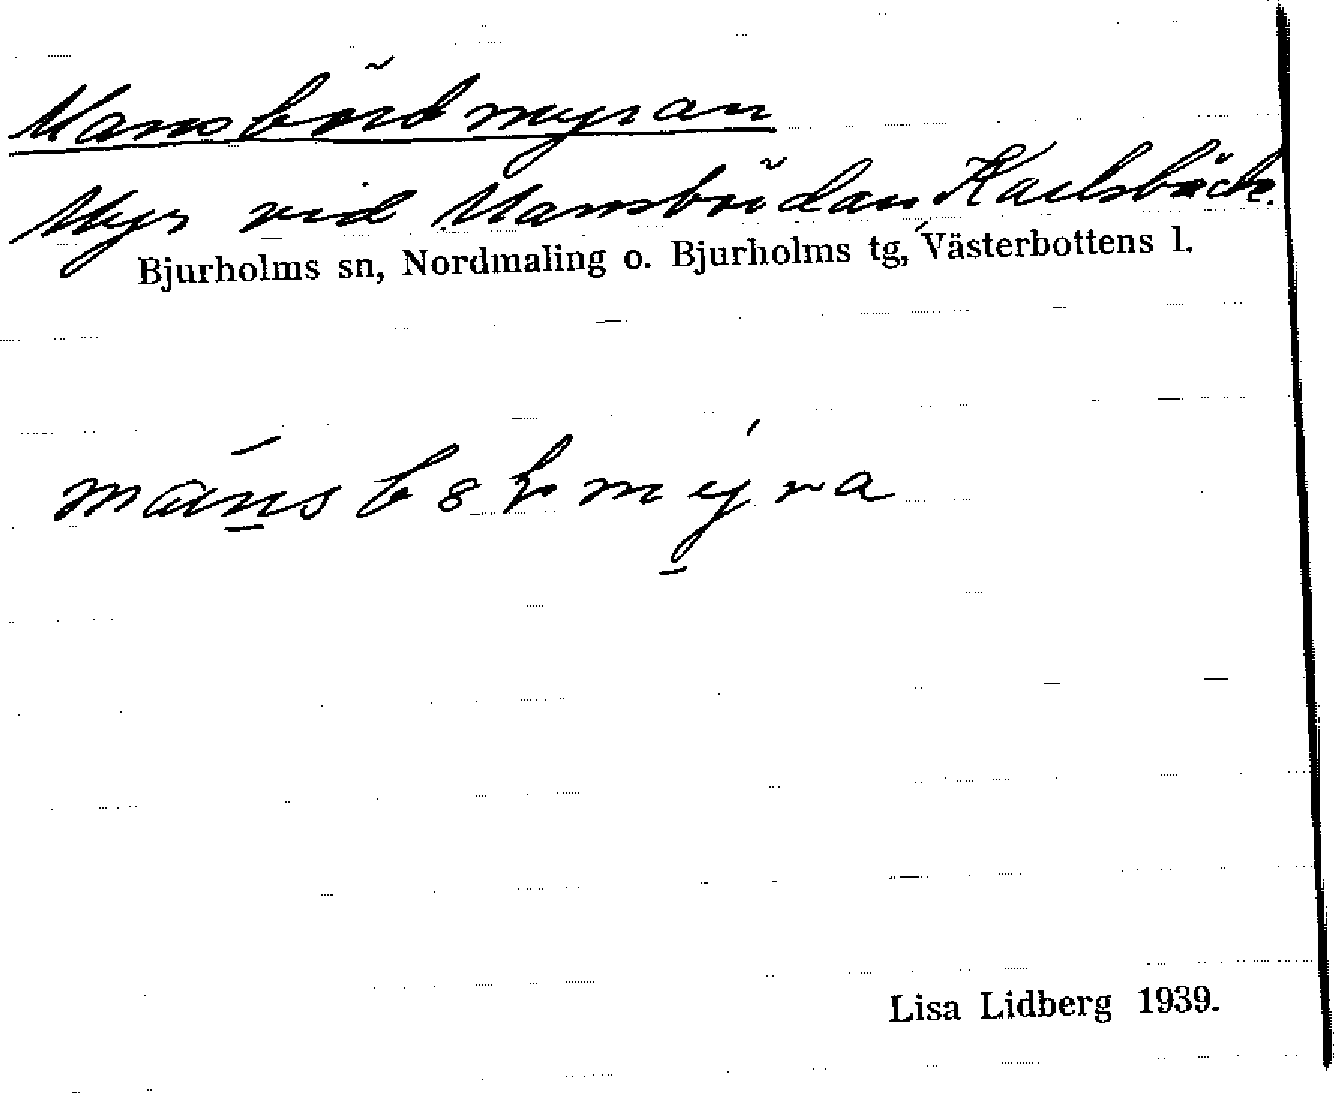 Mansbördmyran
Myr vid Mansbördan, Karlsbäck.
Bjurholms sn, Nordmaling o. Bjurholms tg, Västerbottens l.
Lisa Lidberg 1939.